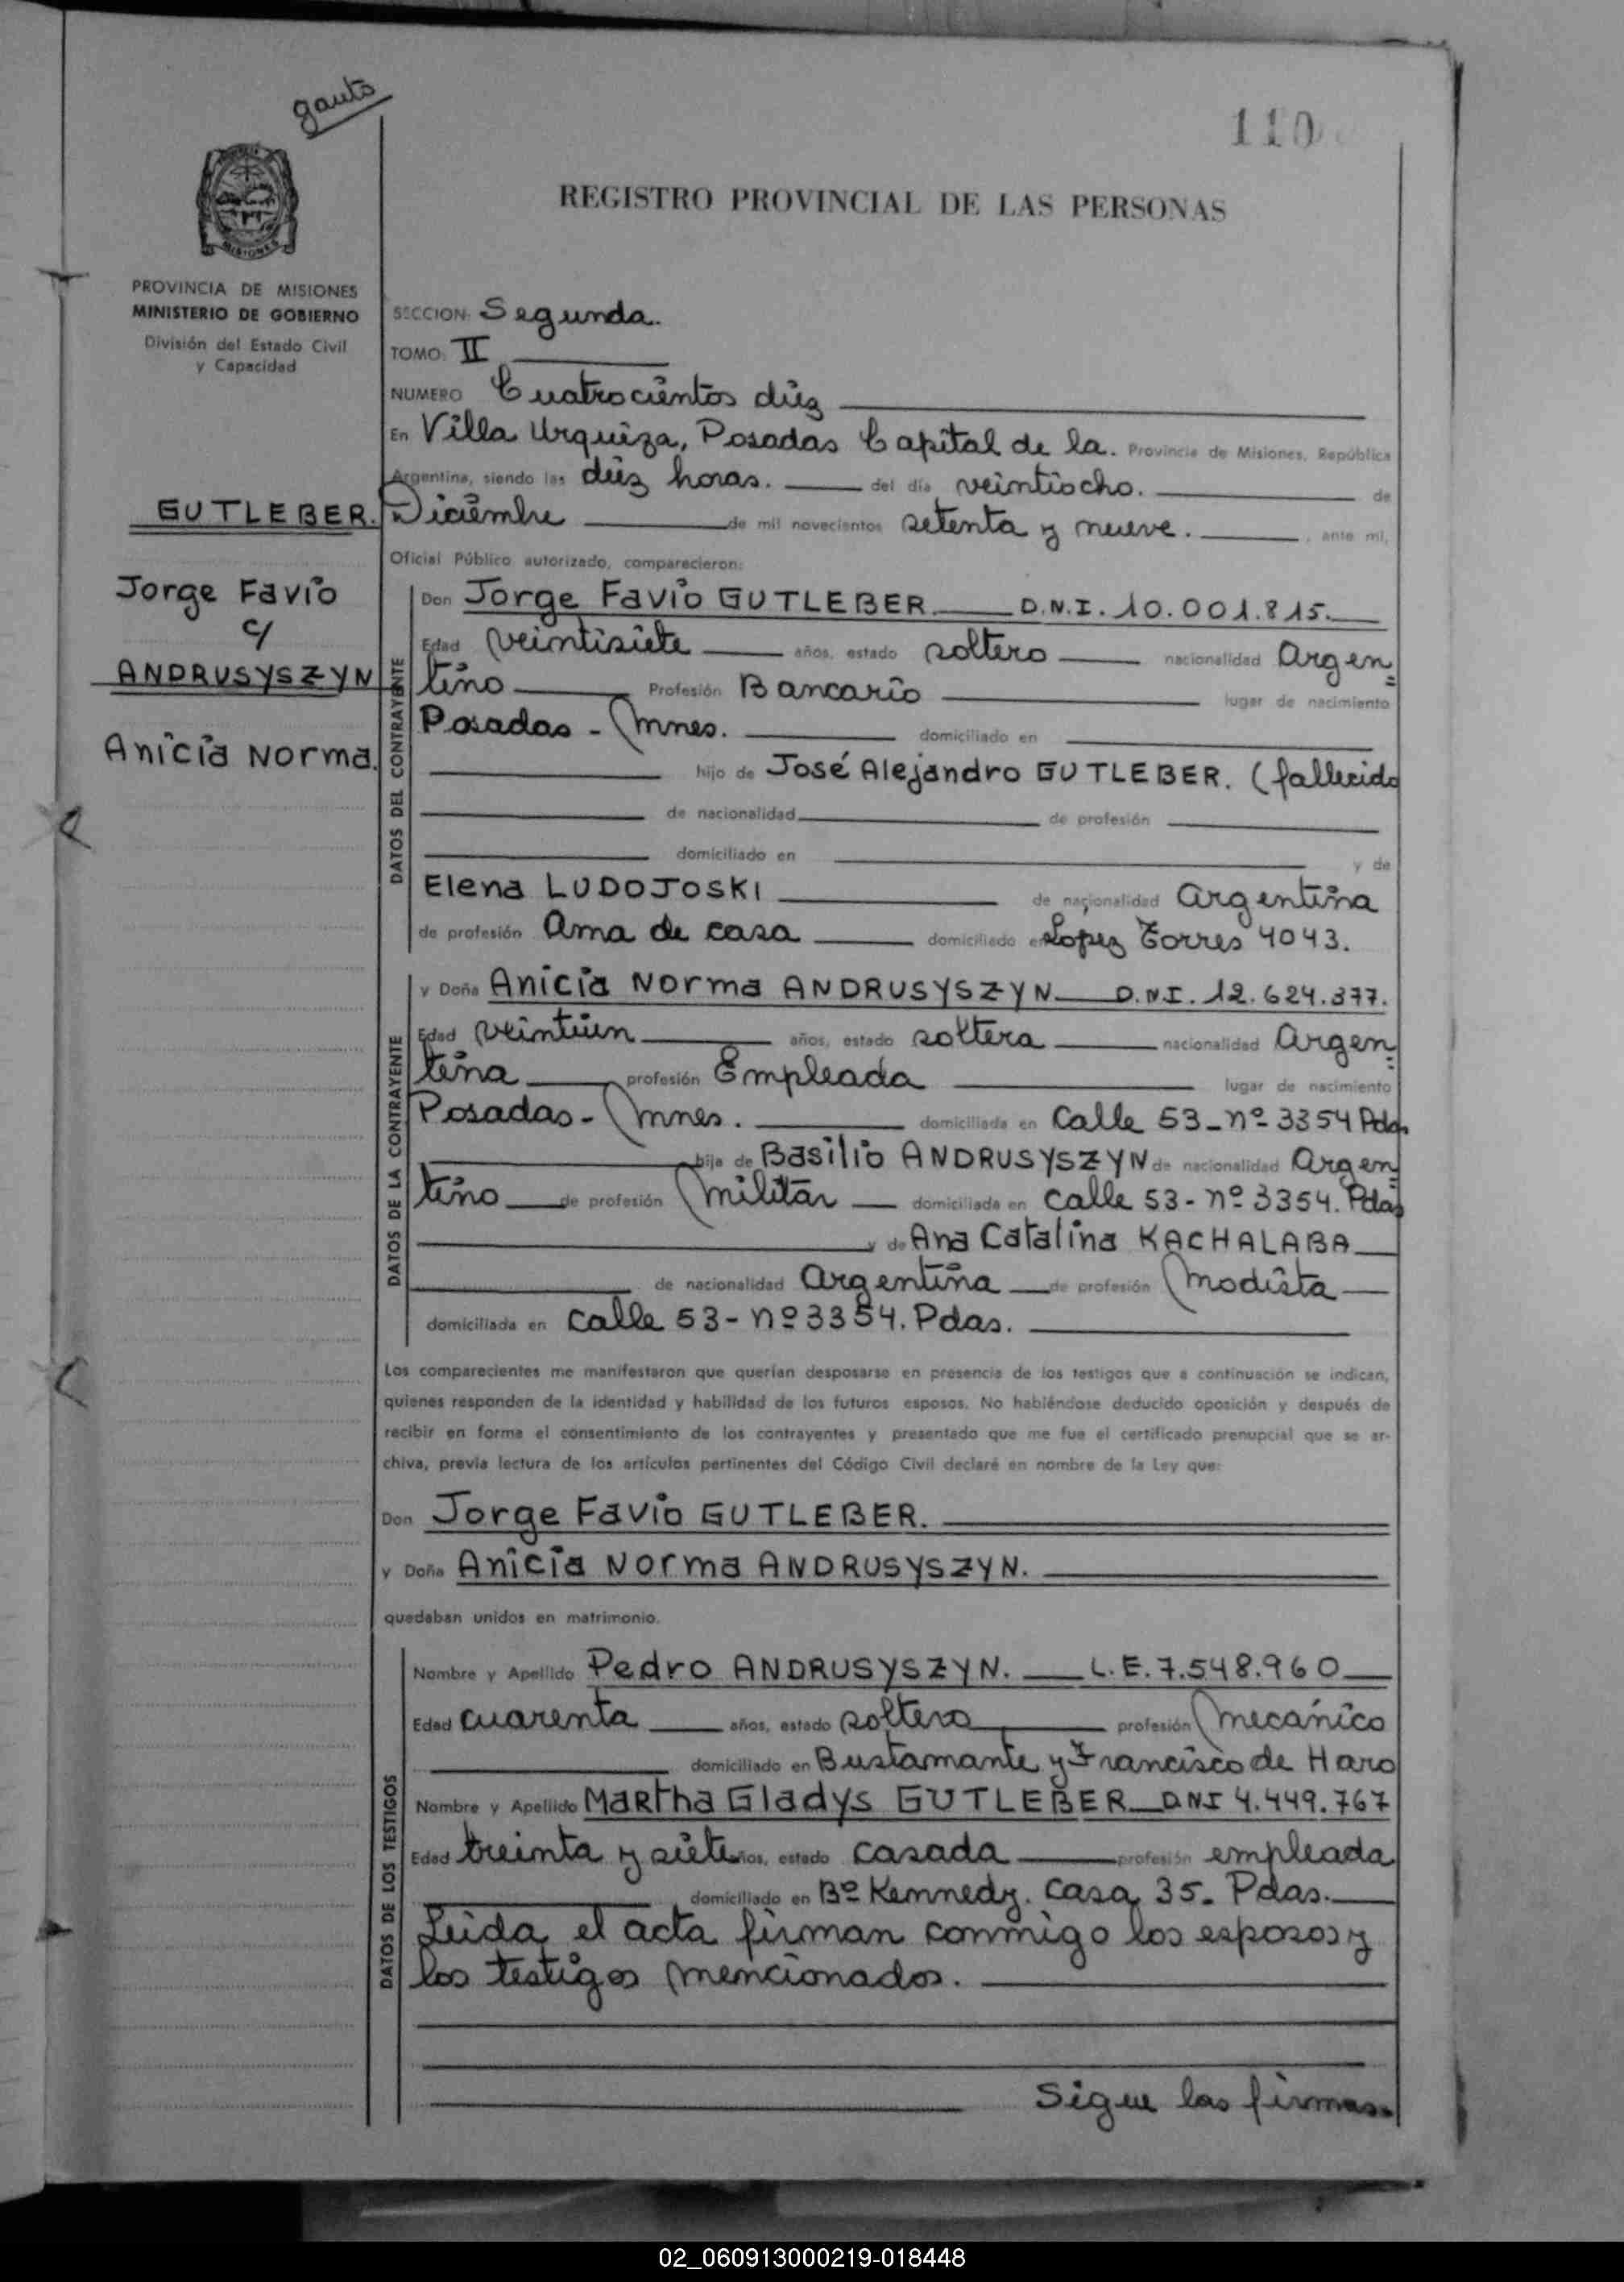 gauto
110
PROVINCIA DE MISIONES
MINISTERIO DE GOBIERNO
División del Estado Civil
y Capacidad
GUTLEBER.
Jorge Favio
c/
ANDRUSYSZYN
Anicia Norma.
REGISTRO PROVINCIAL DE LAS PERSONAS
SECCION: Segunda.
TOMO: II
NUMERO Cuatrocientos diez
En Villa Urquiza, Posadas Capital de la. Provincia de Misiones, República
Argentina, siendo las diez horas. del día veintiocho. de
Diciembre de mil novecientos setenta y nueve. , ante mí,
Oficial Público autorizado, comparecieron:
DATOS DEL CONTRAYENTE
Don Jorge Favio GUTLEBER D.N.I. 10.001.815.
Edad veintisiete años, estado soltero nacionalidad Argen=
tino Profesión Bancario lugar de nacimiento
Posadas - Mnes. domiciliado en
hijo de José Alejandro GUTLEBER. (fallecido
de nacionalidad de profesión
domiciliado en y de
Elena LUDOJOSKI de nacionalidad Argentina
de profesión Ama de casa domiciliado en Lopez Torres 4043.
DATOS DE LA CONTRAYENTE
y Doña Anicia Norma ANDRUSYSZYN D.N.I. 12.624.377.
Edad veintiún años, estado soltera nacionalidad Argen=
tina profesión Empleada lugar de nacimiento
Posadas - Mnes. domiciliada en Calle 53 - nº 3354 Pdas.
hija de Basilio ANDRUSYSZYN de nacionalidad Argen=
tino de profesión Militar domiciliada en Calle 53 - nº 3354. Pdas
y de Ana Catalina KACHALABA
de nacionalidad Argentina de profesión Modista
domiciliada en Calle 53 - nº 3354. Pdas.
Los comparecientes me manifestaron que querían desposarse en presencia de los testigos que a continuación se indican,
quienes responden de la identidad y habilidad de los futuros esposos. No habiéndose deducido oposición y después de
recibir en forma el consentimiento de los contrayentes y presentado que me fue el certificado prenupcial que se ar-
chiva, previa lectura de los artículos pertinentes del Código Civil declaré en nombre de la Ley que:
Don Jorge Favio GUTLEBER.
y Doña Anicia Norma ANDRUSYSZYN.
quedaban unidos en matrimonio.
DATOS DE LOS TESTIGOS
Nombre y Apellido Pedro ANDRUSYSZYN. L.E. 7.548.960
Edad cuarenta años, estado soltero profesión Mecánico
domiciliado en Bustamante y Francisco de Haro
Nombre y Apellido Martha Gladys GUTLEBER DNI 4.449.767
Edad treinta y siete años, estado casada profesión empleada
domiciliado en Bº Kennedy. Casa 35. Pdas.
Leida el acta firman conmigo los esposos y
los testigos mencionados.
Sigue las firmas.
02_060913000219-018448